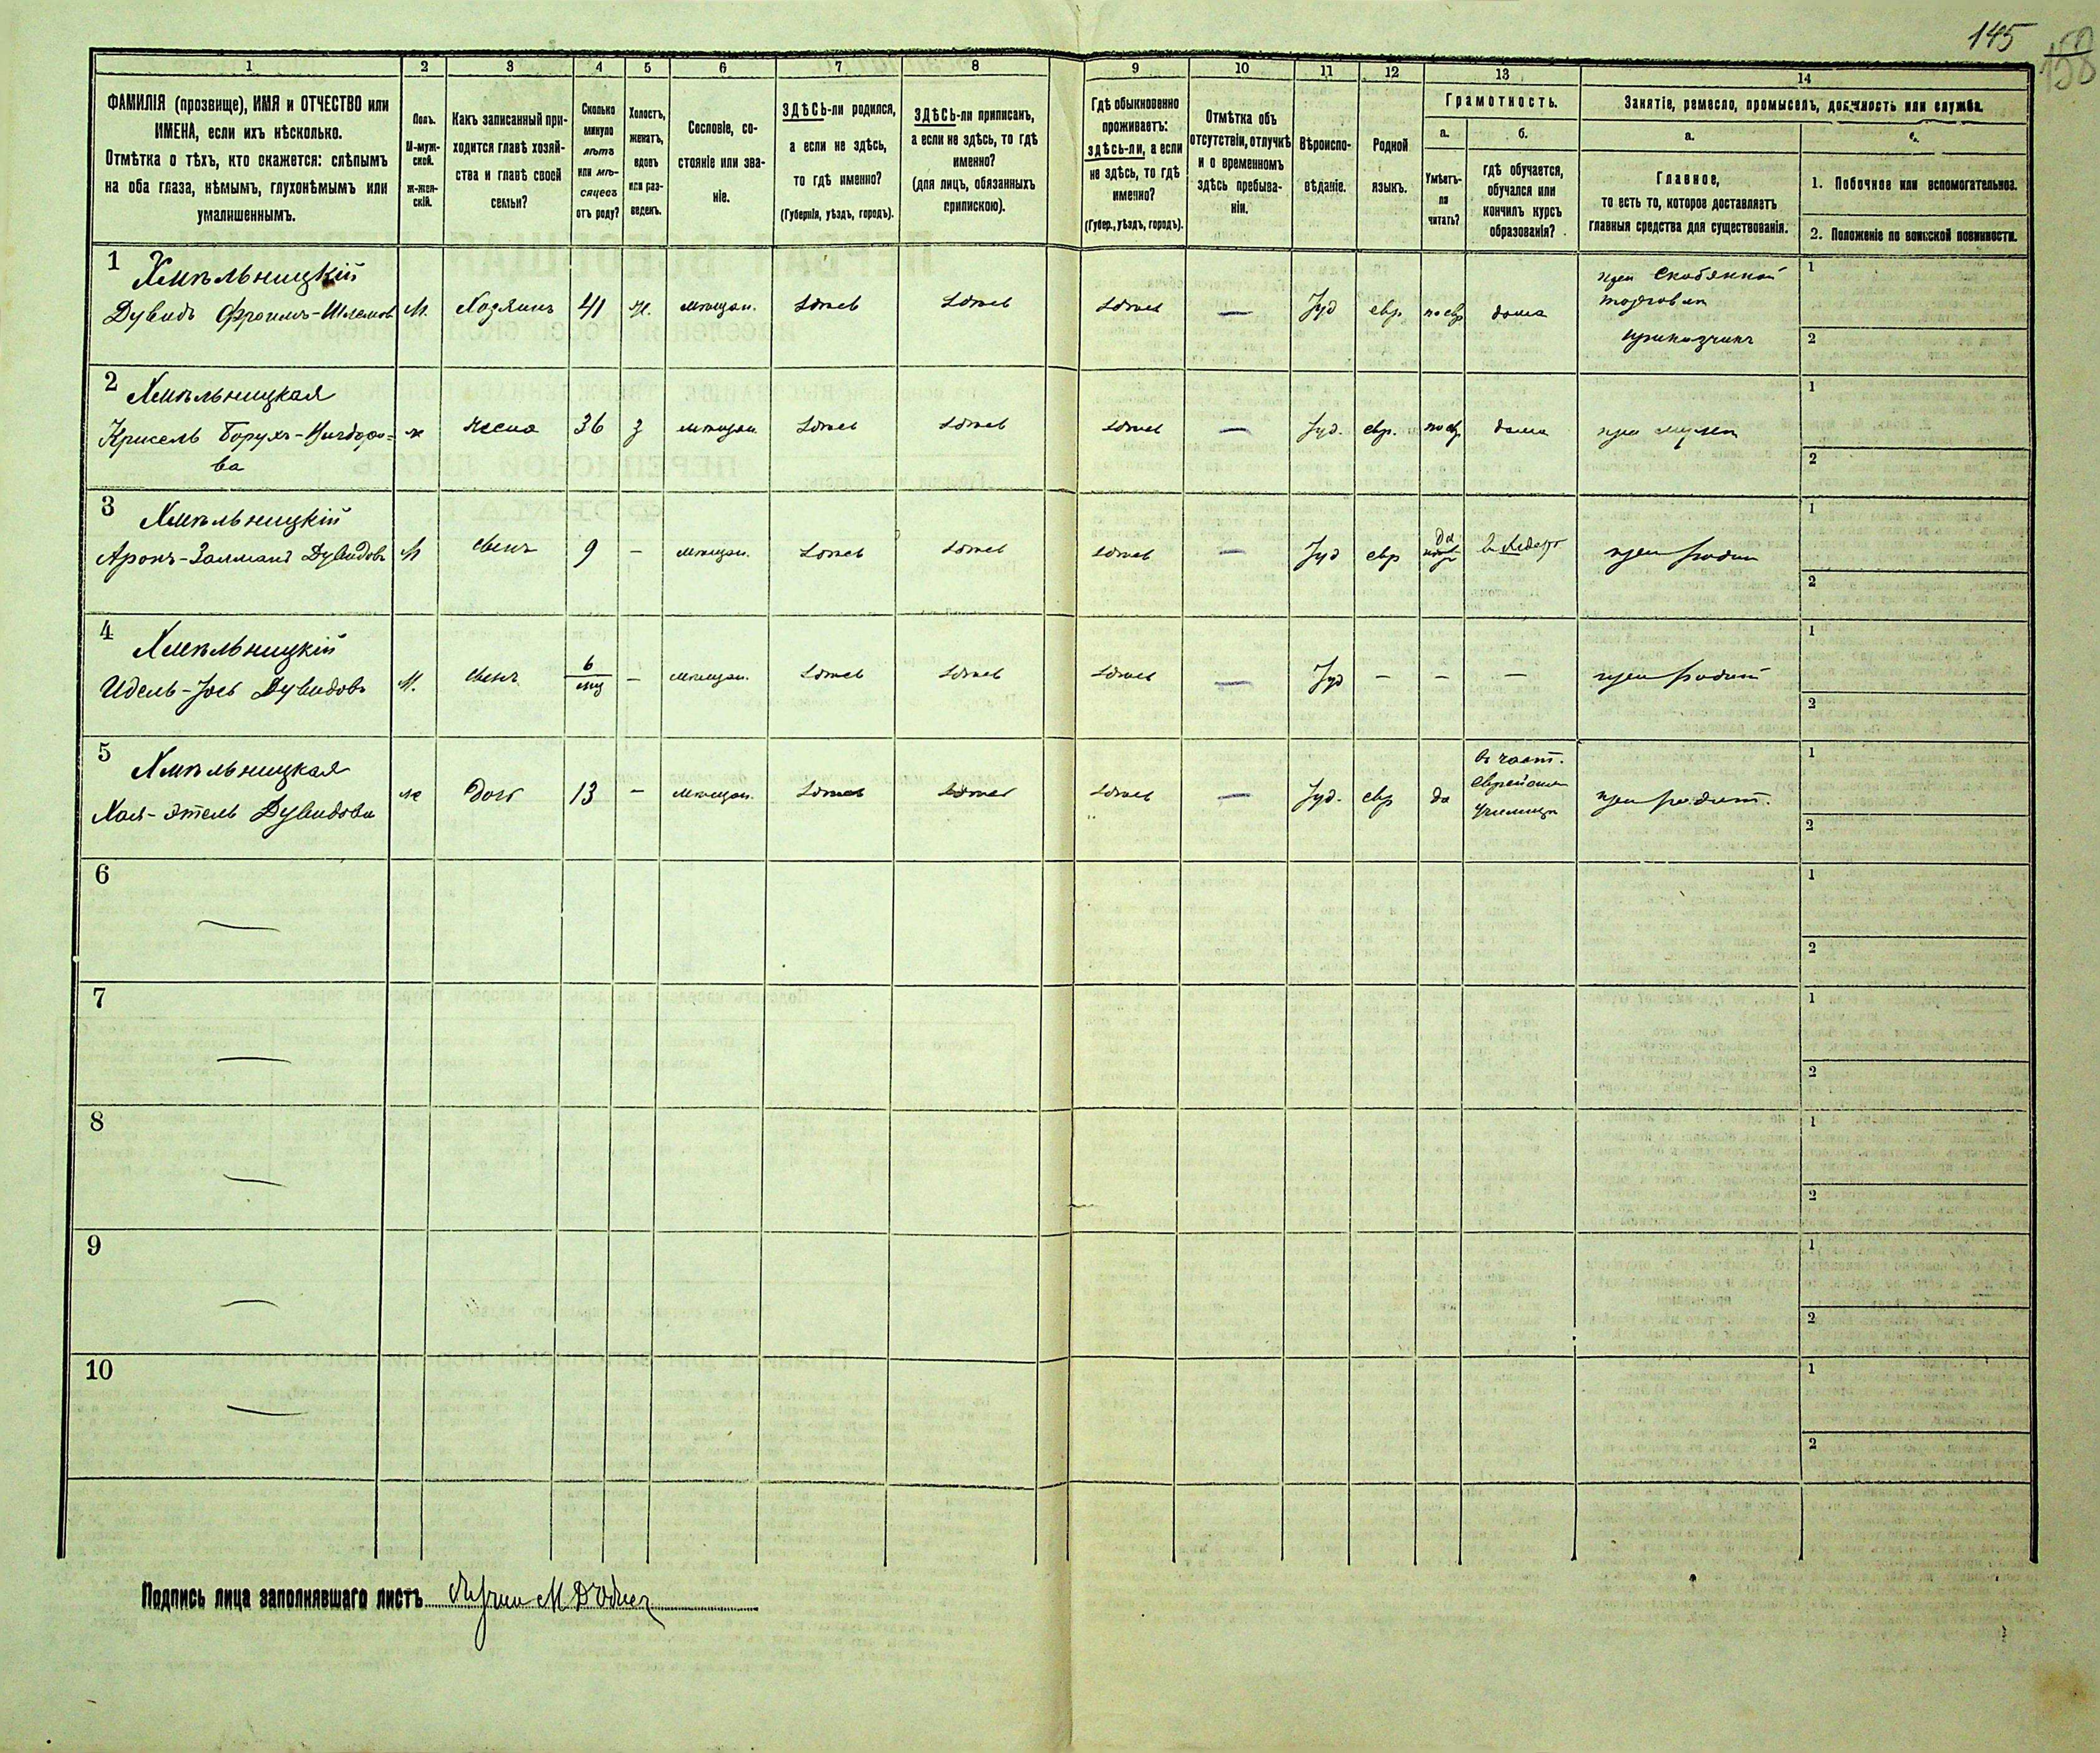 145
158
1
2
3
4
5
6
7
8
9
10
11
12
13
14
ФАМИЛІЯ (прозвище), ИМЯ и ОТЧЕСТВО или
ИМЕНА, если ихъ нѣсколько.
Отмѣтка о тѣхъ, кто окажется: слѣпымъ
на оба глаза, нѣмымъ, глухонѣмымъ или
умалишеннымъ.
Полъ.
М-муж-
ской.
ж-жен-
скій.
Какъ записанный при-
ходится главѣ хозяй-
ства и главѣ своей
семьи?
Сколько
минуло
лѣтъ
или мѣ-
сяцевъ
отъ роду?
Холостъ,
женатъ,
вдовъ
или раз-
веденъ.
Сословіе, со-
стояніе или зва-
ніе.
ЗДѢСЬ-ли родился,
а если не здѣсь,
то гдѣ именно?
(Губернія, уѣздъ, городъ).
ЗДѢСЬ-ли приписанъ,
а если не здѣсь, то гдѣ
именно?
(для лицъ, обязанныхъ
припискою).
Гдѣ обыкновенно
проживаетъ:
здѣсь-ли, а если
не здѣсь, то гдѣ
именно?
(Губер., уѣздъ, городъ).
Отмѣтка объ
отсутствіи, отлучкѣ
и о временномъ
здѣсь пребыва-
ніи.
Вѣроиспо-
вѣданіе.
Родной
языкъ.
Грамотность.
а.
б.
Умѣетъ-
ли
читать?
гдѣ обучается,
обучался или
кончилъ курсъ
образованія?
Занятіе, ремесло, промыселъ, должность или служба.
а.
Главное,
то есть то, которое доставляетъ
главныя средства для существованія.
1. Побочное или вспомогательное.
2. Положеніе по воинской повинности.
1 Хмѣльницкій
Дувидъ Фроимъ-Шлемов М. Хозяинъ 41 ж. мѣщан. здѣсь здѣсь здѣсь — Іуд евр. по евр дома
при скобянной
торговли
приказчикъ
1
2
2 Хмѣльницкая
Крисель Борухъ- ж жена 36 з мѣщан здѣсь здѣсь здѣсь — Іуд. евр. по евр дома при мужѣ
ва
1
2
3 Хмѣльницкій
Аронъ-Залманъ Дувидовъ М сынъ 9 — мѣщан. здѣсь здѣсь здѣсь — Іуд евр да в хедерѣ при родит
1
2
4 Хмѣльницкій
Идель-Іось Дувидовъ М. сынъ 6 мѣс — мѣщан. здѣсь здѣсь здѣсь — Іуд — — — при родит
1
2
5 Хмѣльницкая
Хая-Этель Дувидова ж дочь 13 — мѣщан. здѣсь здѣсь здѣсь — Іуд. евр да
въ част.
еврейском
училищѣ
при родит.
1
2
6 —
1
2
7 —
1
2
8 —
1
2
9 —
1
2
10 —
1
2
Подпись лица заполнявшаго листъ